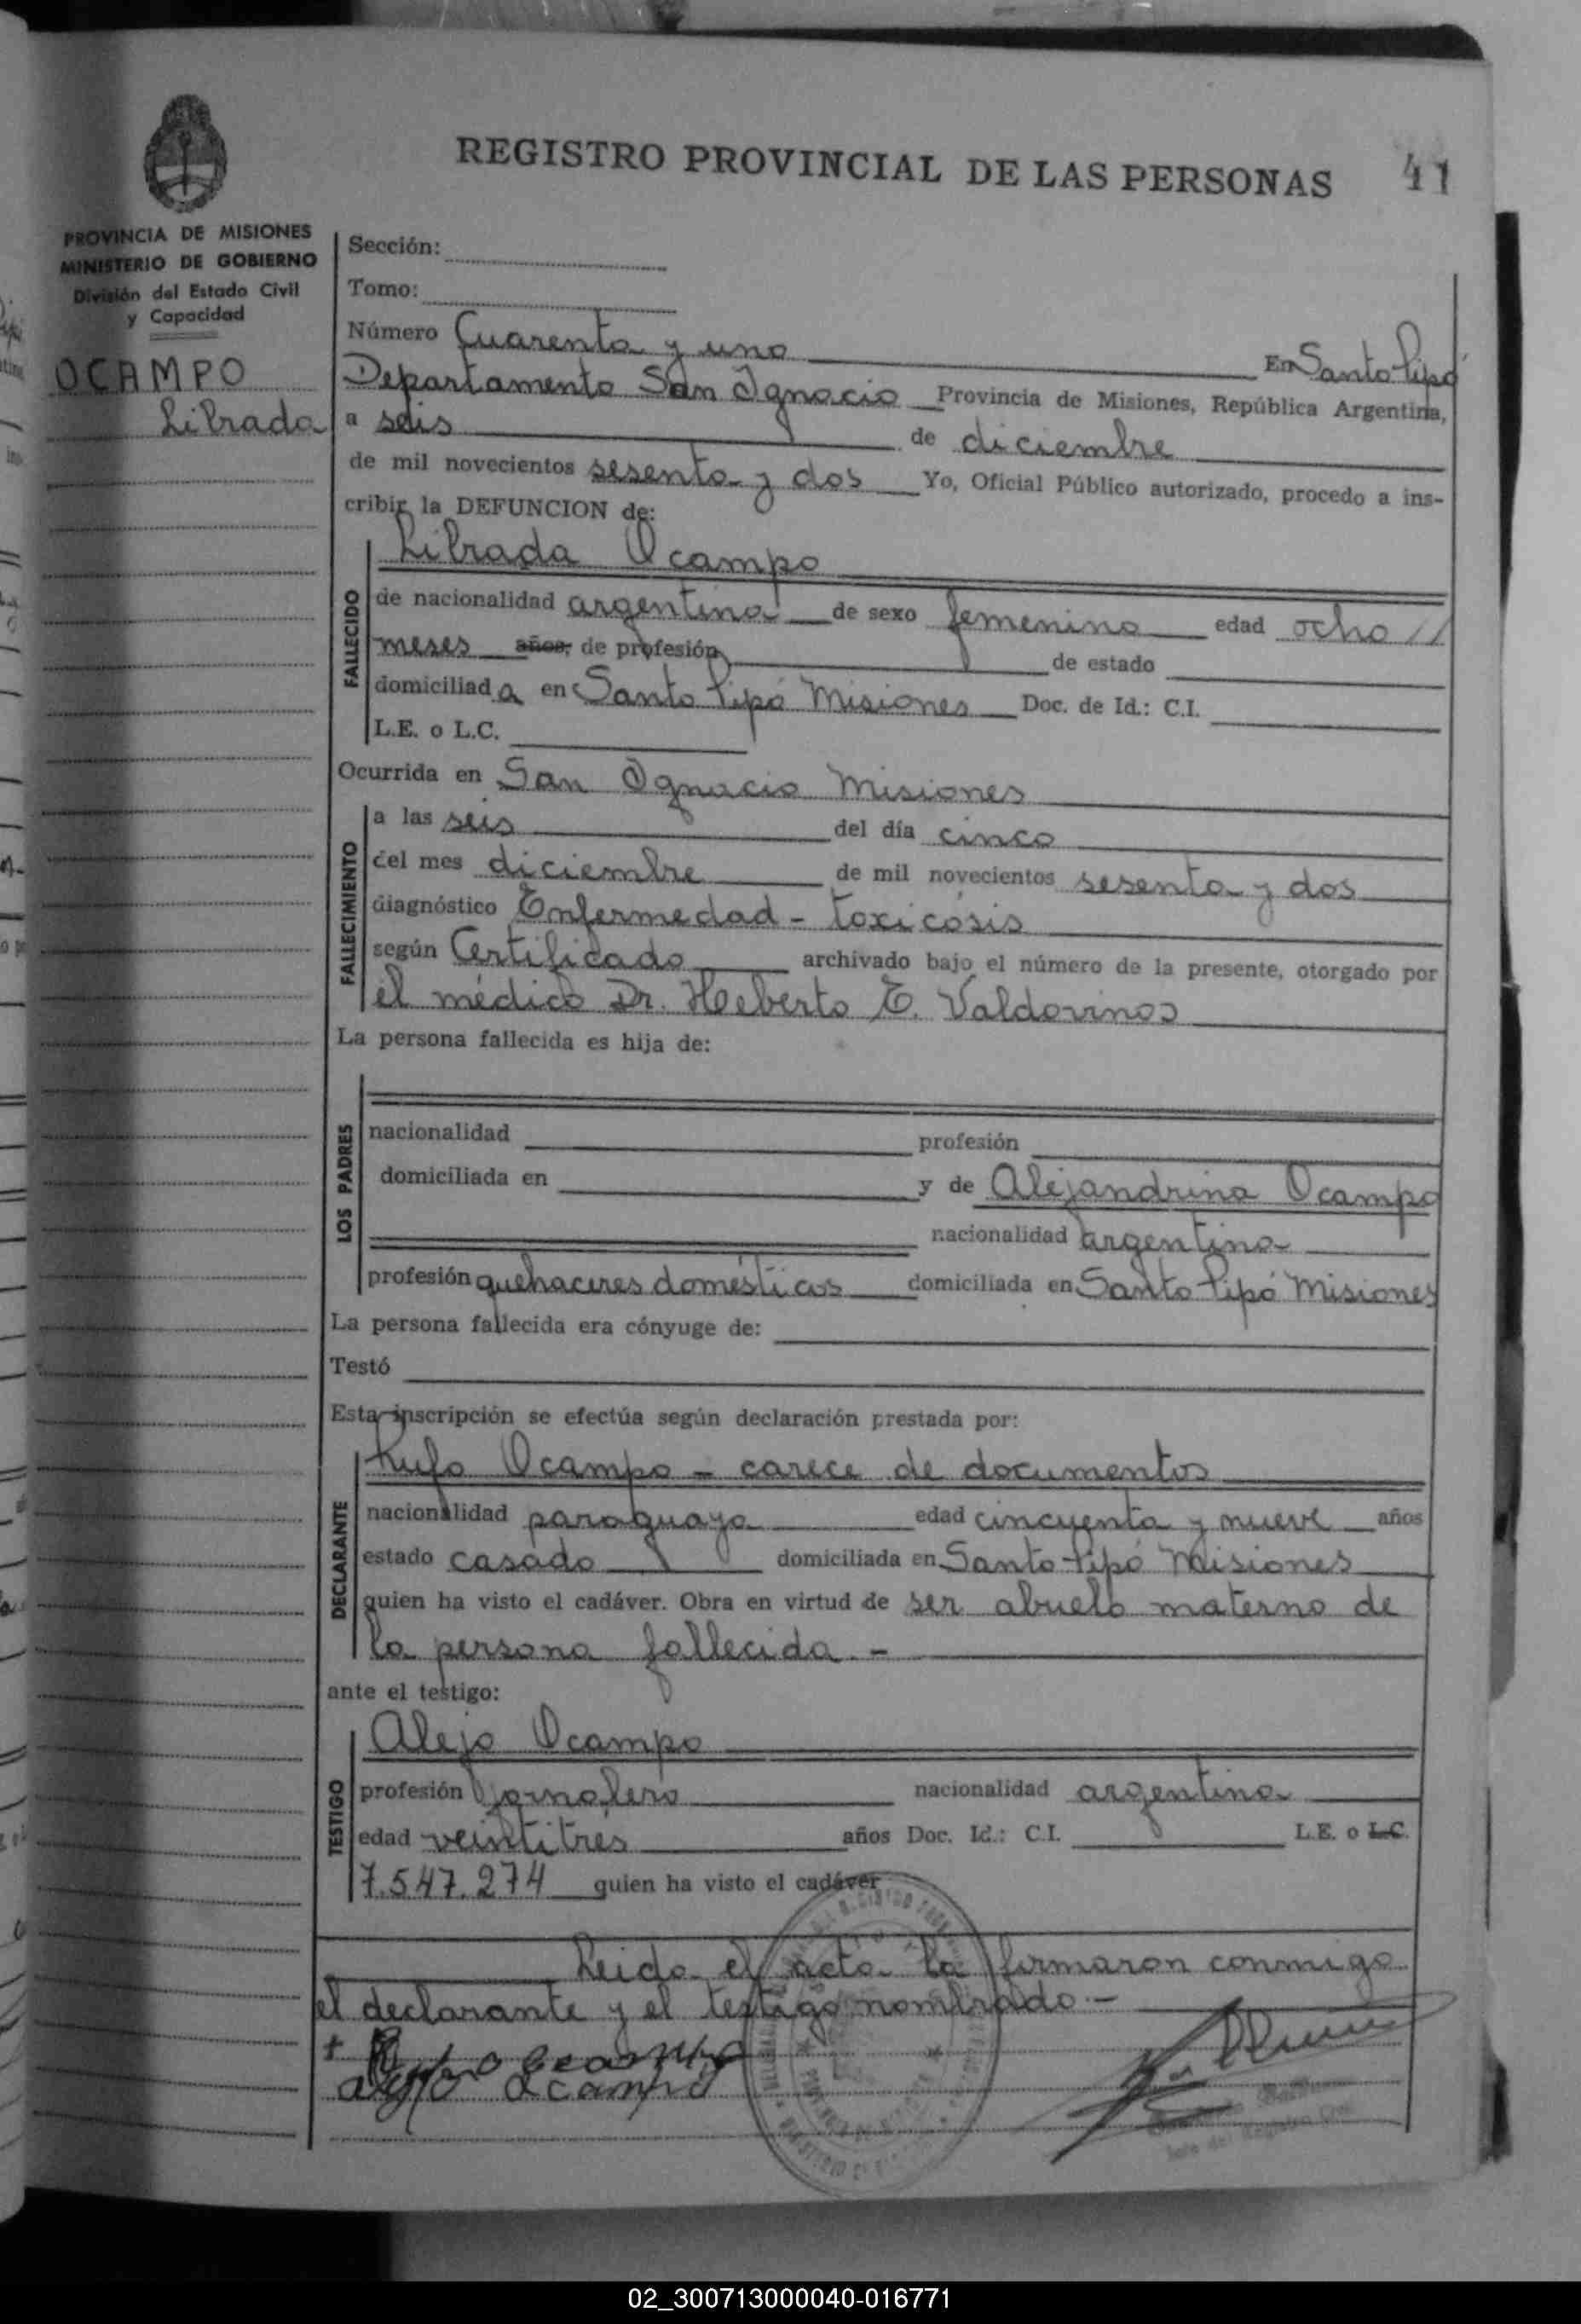 REGISTRO PROVINCIAL DE LAS PERSONAS 41
PROVINCIA DE MISIONES
MINISTERIO DE GOBIERNO
División del Estado Civil
y Capacidad
OCAMPO
Librada
Sección:
Tomo:
Número Cuarenta y uno En Santo Pipó
Departamento San Ignacio Provincia de Misiones, República Argentina,
a seis de diciembre
de mil novecientos sesenta y dos Yo, Oficial Público autorizado, procedo a ins-
cribir la DEFUNCION de:
FALLECIDO
Librada Ocampo
de nacionalidad argentina de sexo femenino edad ocho //
meses años, de profesión de estado
domiciliad a en Santo Pipó Misiones Doc. de Id.: C.I.
L.E. o L.C.
Ocurrida en San Ignacio Misiones
FALLECIMIENTO
a las seis del día cinco
del mes diciembre de mil novecientos sesenta y dos
diagnóstico Enfermedad - toxicósis
según Certificado archivado bajo el número de la presente, otorgado por
el médico Dr. Heberto E. Valdovinos
La persona fallecida es hija de:
LOS PADRES
nacionalidad profesión
domiciliada en y de Alejandrina Ocampo
nacionalidad argentina
profesión quehaceres domésticos domiciliada en Santo Pipó Misiones
La persona fallecida era cónyuge de:
Testó
Esta inscripción se efectúa según declaración prestada por:
DECLARANTE
Rufo Ocampo - carece de documentos
nacionalidad paraguaya edad cincuenta y nueve años
estado casado domiciliada en Santo Pipó Misiones
quien ha visto el cadáver. Obra en virtud de ser abuelo materno de
la persona fallecida. -
ante el testigo:
TESTIGO
Alejo Ocampo
profesión jornalero nacionalidad argentina
edad veintitrés años Doc. Id.: C.I. L.E. o L.C.
7.547.274 quien ha visto el cadáver
Leida el acta la firmaron conmigo
el declarante y el testigo nombrado.-
+ Rufo Ocampo
alejo ocampo
Jefe del Registro Civil
02_300713000040-016771